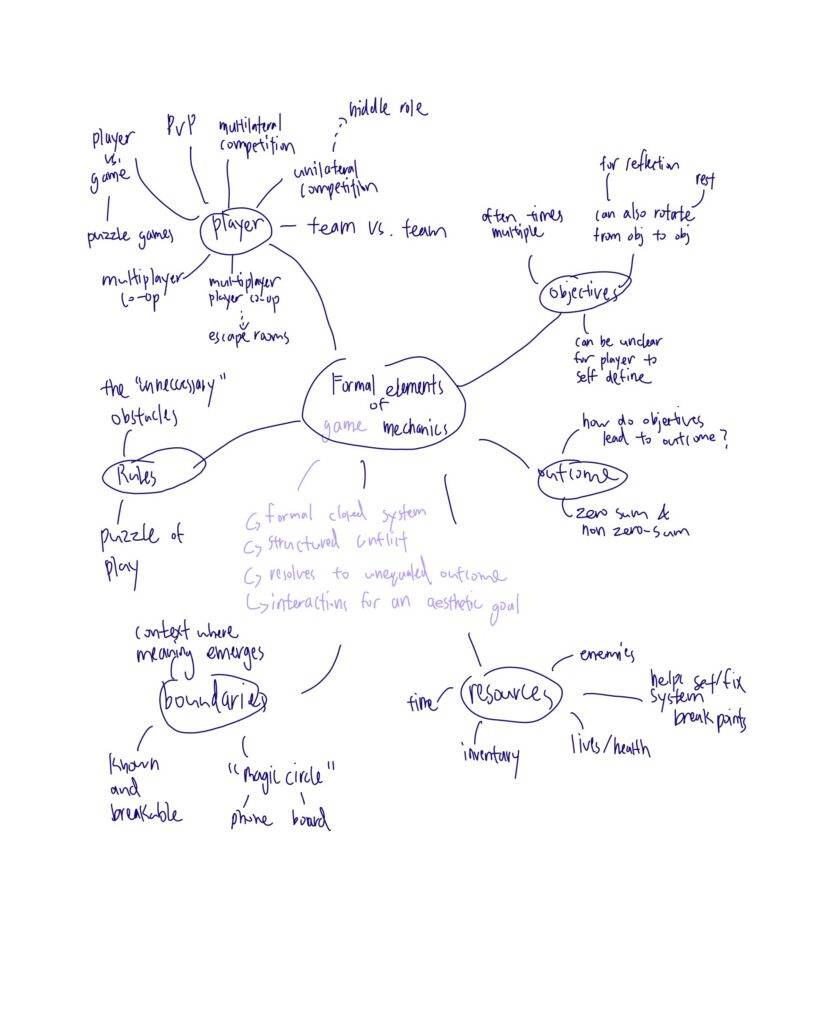 hiddle role
PvP
multilateral
competition
player
vs.
game
unilateral
competition
player
team vs. team
puzzle games
multiplayer
co-op
multiplayer
player co-op
escape rooms
for reflection
rest
often times
multiple
can also rotate
from obj to obj
objectives
can be unclear
for player to
self define
Formal elements
of
game mechanics
the "unneccessary"
obstacles
Rules
puzzle of
play
how do objectives
lead to outcome?
outcome
zero sum &
non zero-sum
formal closed system
structured conflict
resolves to unequaled outcome
interactions for an aesthetic goal
context where
meaning emerges
boundaries
known
and
breakable
"magic circle"
phone board
enemies
resources
time
helps set/fix
system
break points
inventory
lives/health